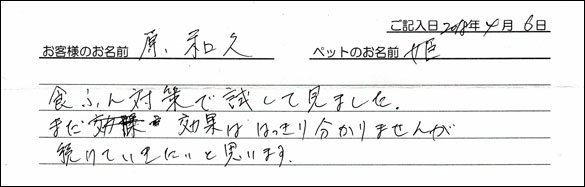 ご記入日 2018年 4月 6日
お客様のお名前 原 和久 ペットのお名前 姫
食ふん対策で試して見ました.
まだ 効果は はっきり分かりませんが
続けていきたいと思います.